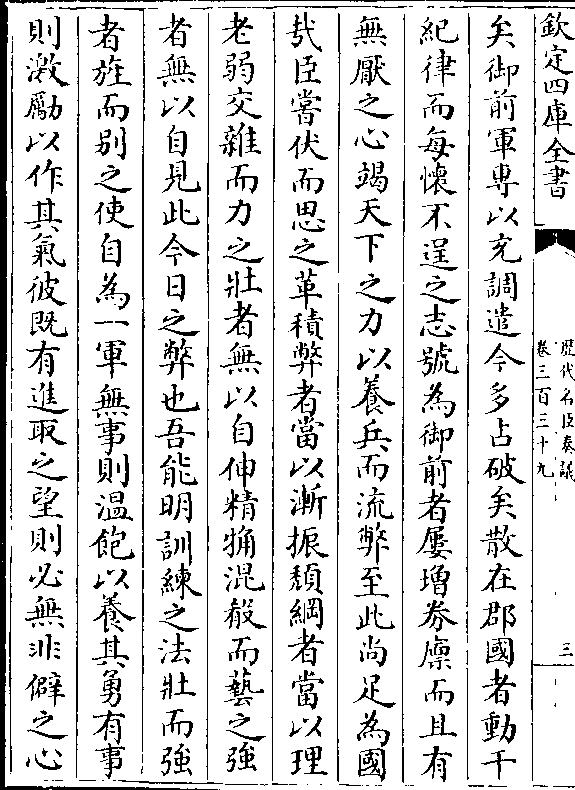 欽定四庫全書
歷代名臣奏議
卷三百三十九
三
矣御前軍專以充調遣今多占破矣散在郡國者動干
紀律而每懷不逞之志號為御前者屢增券廩而且有
無厭之心竭天下之力以養兵而流弊至此尚足為國
㢤臣嘗伏而思之革積弊者當以漸振頽綱者當以理
老弱交雜而力之壯者無以自伸精觕混殽而藝之強
者無以自見此今日之弊也吾能明訓練之法壯而強
者旌而别之使自為一軍無事則温飽以養其勇有事
則激勵以作其氣彼既有進取之望則必無非僻之心